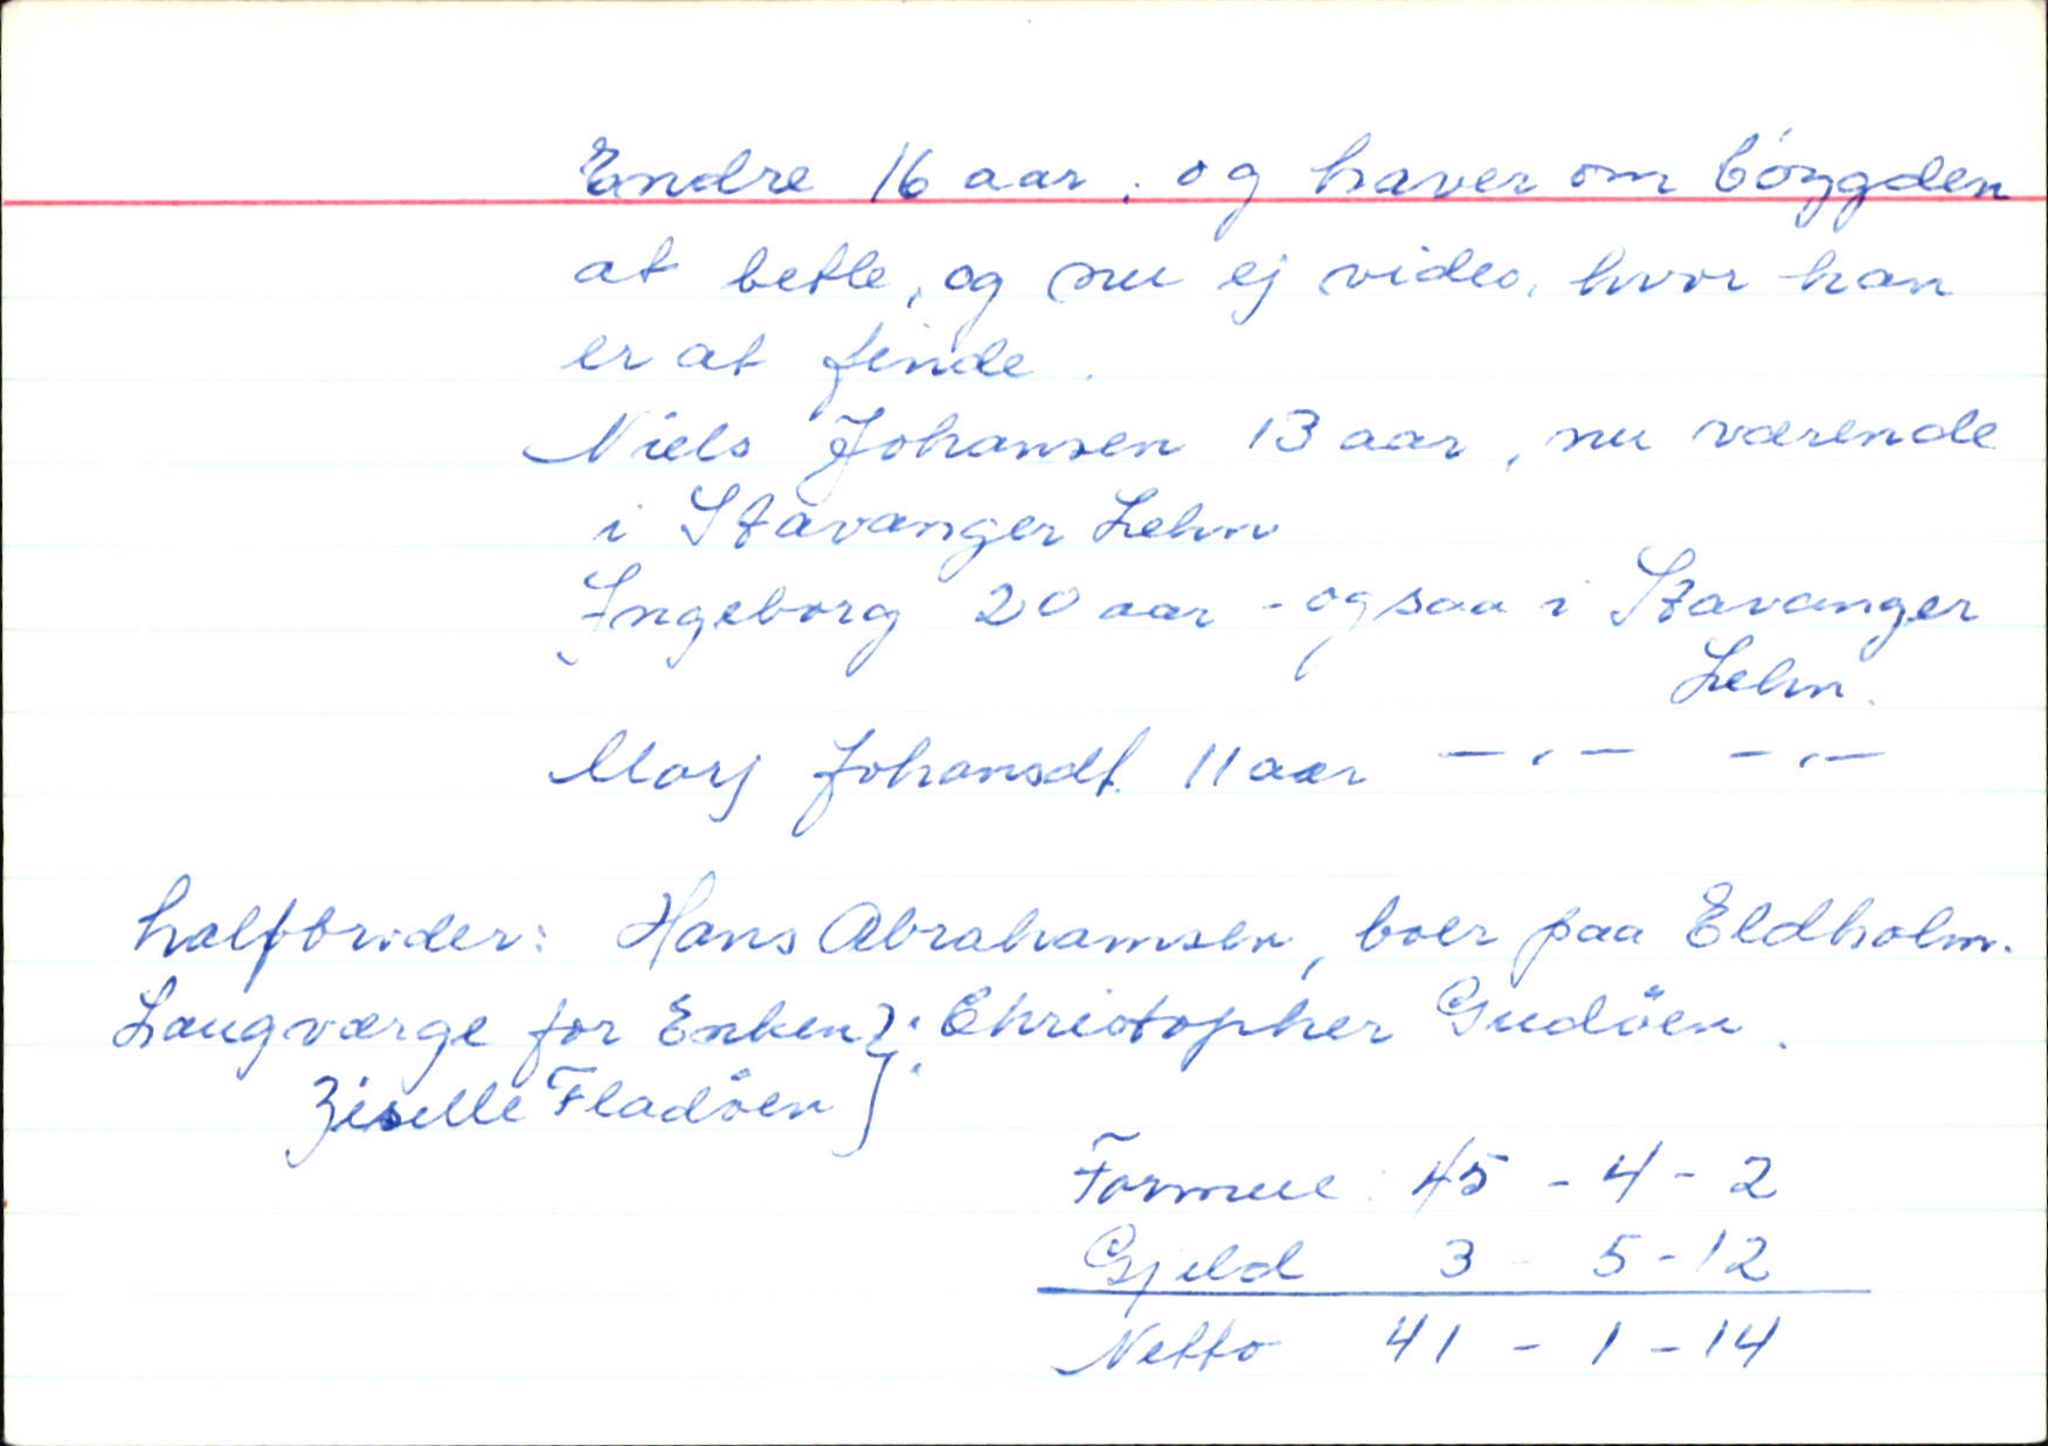 Endre 16 aar, og haver om bøygden
at betle, og nu ej vides, hvor han
er at finde.
Niels Johansen 13 aar, nu værende
i Stavanger Lehn
Ingeborg 20 aar - ogsaa i Stavanger
Lehn.
Marj Johansdt. 11 aar —,— —,—
halfbroder: Hans Abrahamsen, boer paa Eldholm.
Laugværge for Enken }: Christopher Gudöen.
Ziselle Fladöen
Formue: 45 - 4 - 2
Gjeld 3 - 5 - 12
Netto 41 - 1 - 14